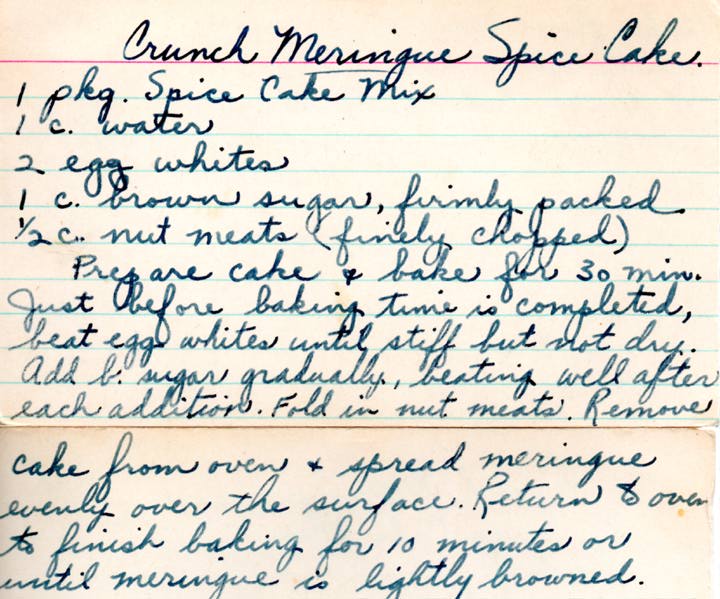 Crunch Meringue Spice Cake.
1 pkg. Spice Cake Mix
1 c. water
2 egg whites
1 c. brown sugar, firmly packed
1/2 c. nut meats (finely chopped)
Prepare cake & bake for 30 min.
Just before baking time is completed,
beat egg whites until stiff but not dry.
Add b. sugar gradually, beating well after
each addition. Fold in nut meats. Remove
cake from oven & spread meringue
evenly over the surface. Return to oven
to finish baking for 10 minutes or
until meringue is lightly browned.